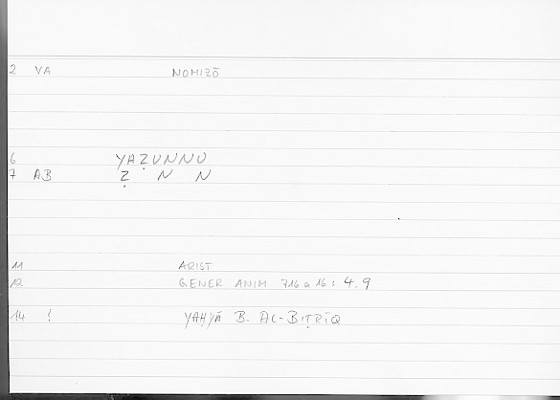 2 VA NOMIZŌ
6 YAẒUNNU
7 AB Ẓ N N
11 ARIST
12 GENER ANIM 716a16: 4.9
14 ! YAḤYĀ B. AL-BIṬRĪQ